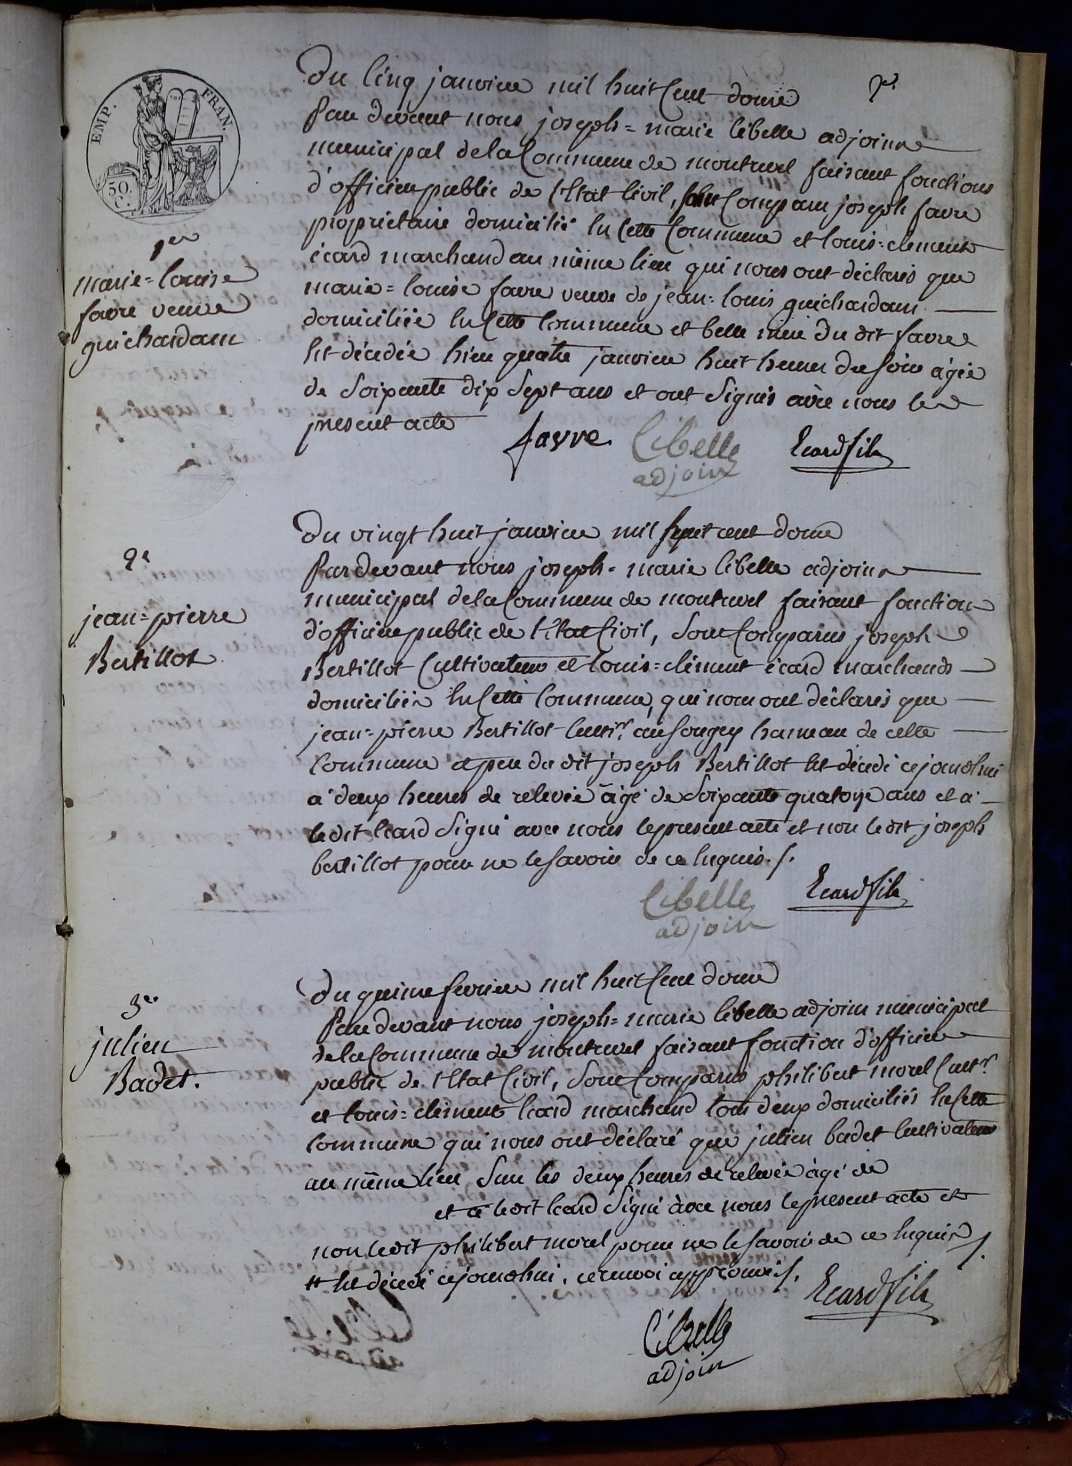 EMP. FRAN.
50.
C.
1er
marie=louise
favre veuve
guichardam
Du Cinq janvier mil huit Cent douze
Par devant nous joseph=marie libelle adjoint
municipal de la Commune de montruel faisant fonctions
d'officier public de l'Etat Civil, sont Comparu joseph favre
propriétaire domicilié En Cette Commune et louis=clement
écard marchand au même lieu qui nous ont déclarés que
marie=louise favre veuve de jean=louis guichardam
domiciliée En Cette Commune et belle mere du dit favre
Est décédée hier quatre janvier huit heures du soir âgée
de Soixante dix Sept ans et ont Signés avec nous le
present acte
favre
Libelle
adjoin
Ecard fils
2e
jean=pierre
Bertillot
Du vingt huit janvier mil huit cent douze
Par devant nous joseph=marie libelle adjoint
municipal de la Commune de montruel faisant fonction
d'officier public de l'état Civil, Sont Comparus joseph
Bertillot Cultivateur et louis=clément écard marchands
domiciliés En Cette Commune, qui nous ont déclarés que
jean=pierre Bertillot Cultr. au songey hameau de cette
Commune et pere du dit joseph Bertillot Est décédé cejourdhui
à deux heures de relevée âgé de Soixante quatorze ans et a
le dit Ecard Signé avec nous le present acte et non le dit joseph
bertillot pour ne le Savoir de ce Enquis./.
Libelle
adjoin
Ecard fils
3e
julien
Badet.
Du quinze fevrier mil huit Cent douze
Par devant nous joseph=marie libelle adjoint municipal
de la Commune de montruel faisant fonction d'officier
public de l'Etat Civil, Sont Comparus philibert morel Cultr.
et louis=clément Ecard marchand tous deux domiciliés En Cette
Commune qui nous ont déclaré que julien badet Cultivateur
au même lieu Sur les deux heures de relevée âgé de
et a le dit Ecard Signé avec nous le present acte et
non le dit philibert morel pour ne le Savoir de ce Enquis ./.
# Est décédé cejourdhui. ce renvoi approuvé./.
Ecard fils
Libelle
adjoin